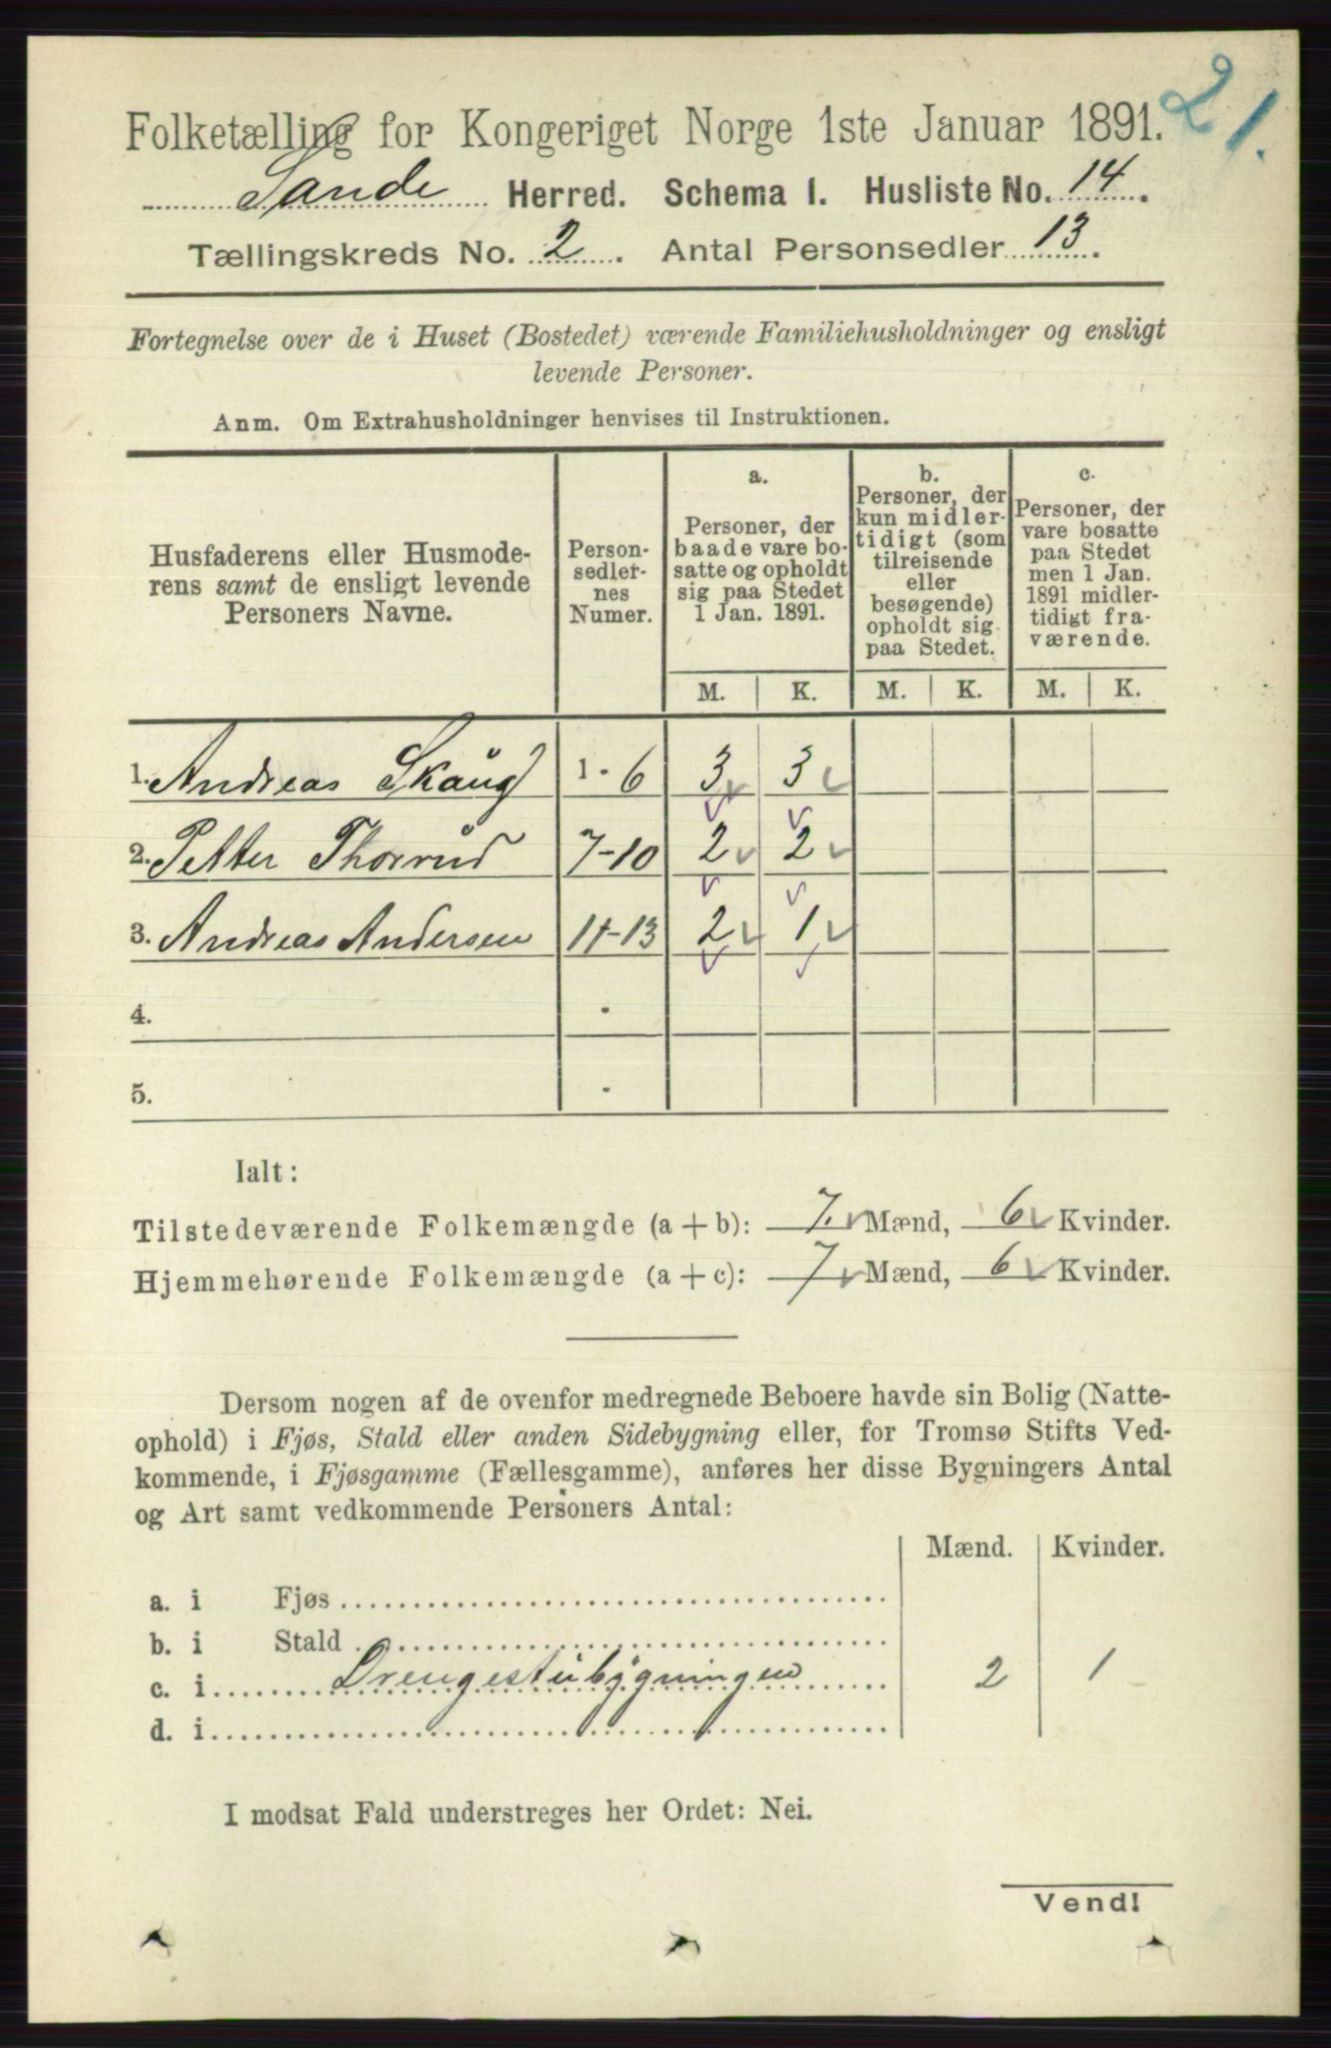 21.
Folketælling for Kongeriget Norge 1ste Januar 1891.
Sande Herred. Schema I. Husliste No. 14.
Tællingskreds No. 2. Antal Personsedler 13.
Fortegnelse over de i Huset (Bostedet) værende Familiehusholdninger og ensligt
levende Personer.
Anm. Om Extrahusholdninger henvises til Instruktionen.
Husfaderens eller Husmode-
rens samt de ensligt levende
Personers Navne.
Person-
sedler-
nes
Numer.
a.
Personer, der
baade vare bo-
satte og opholdt
sig paa Stedet
1 Jan. 1891.
b.
Personer, der
kun midler-
tidigt (som
tilreisende
eller
besøgende)
opholdt sig
paa Stedet.
c.
Personer, der
vare bosatte
paa Stedet
men 1 Jan.
1891 midler-
tidigt fra-
værende.
M. K. M. K. M. K.
1. Andreas Skaug 1 - 6 3 3
2. Petter Thorrud 7-10 2 2
3. Andreas Andersen 11-13 2 1
4. -
5. -
Ialt:
Tilstedeværende Folkemængde (a + b): 7 Mænd, 6 Kvinder.
Hjemmehørende Folkemængde (a + c): 7 Mænd, 6 Kvinder.
Dersom nogen af de ovenfor medregnede Beboere havde sin Bolig (Natte-
ophold) i Fjøs, Stald eller anden Sidebygning eller, for Tromsø Stifts Ved-
kommende, i Fjøsgamme (Fællesgamme), anføres her disse Bygningers Antal
og Art samt vedkommende Personers Antal:
Mænd. Kvinder.
a. i Fjøs
b. i Stald
c. i Drengestubygningen 2 1
d. i
I modsat Fald understreges her Ordet: Nei.
Vend!